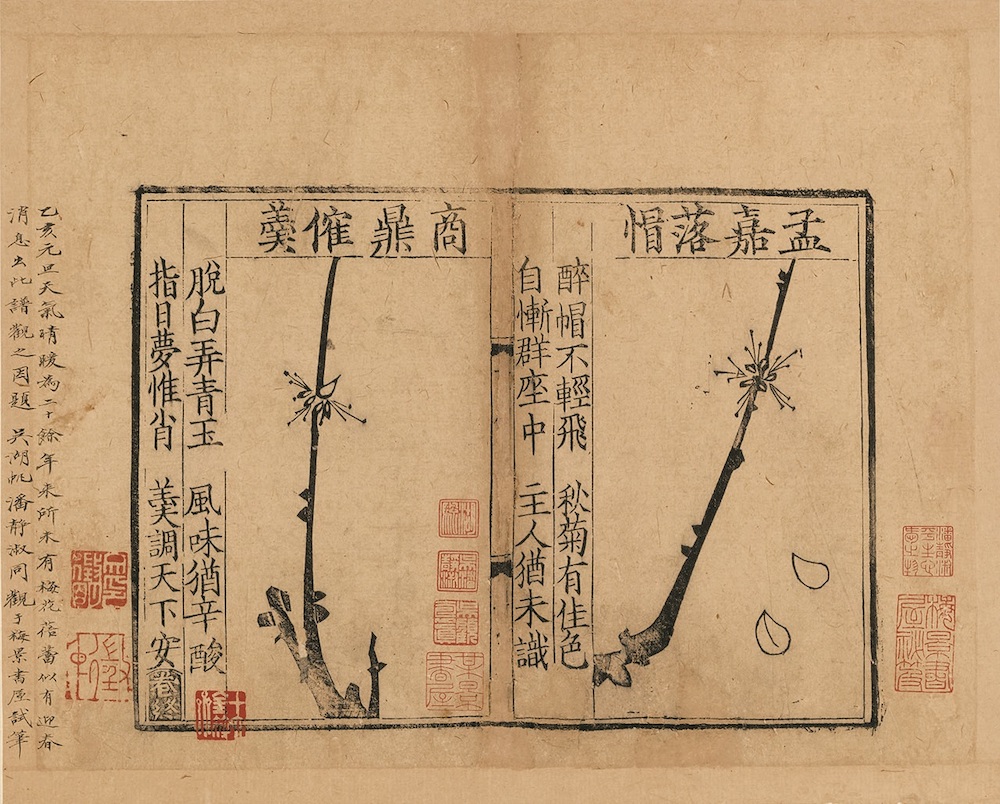 孟嘉落帽
醉帽不輕飛 秋菊有佳色
自慚群座中 主人猶未識
商鼎催羹
脫白弄青玉 風味猶辛酸
指日夢惟肖 羹調天下安 卷終
乙亥元旦天氣晴暖為二十餘年來所未有梅花蓓蕾似有迎春
消息出此譜觀之因題 吳湖帆潘靜淑同觀于梅景書屋試筆